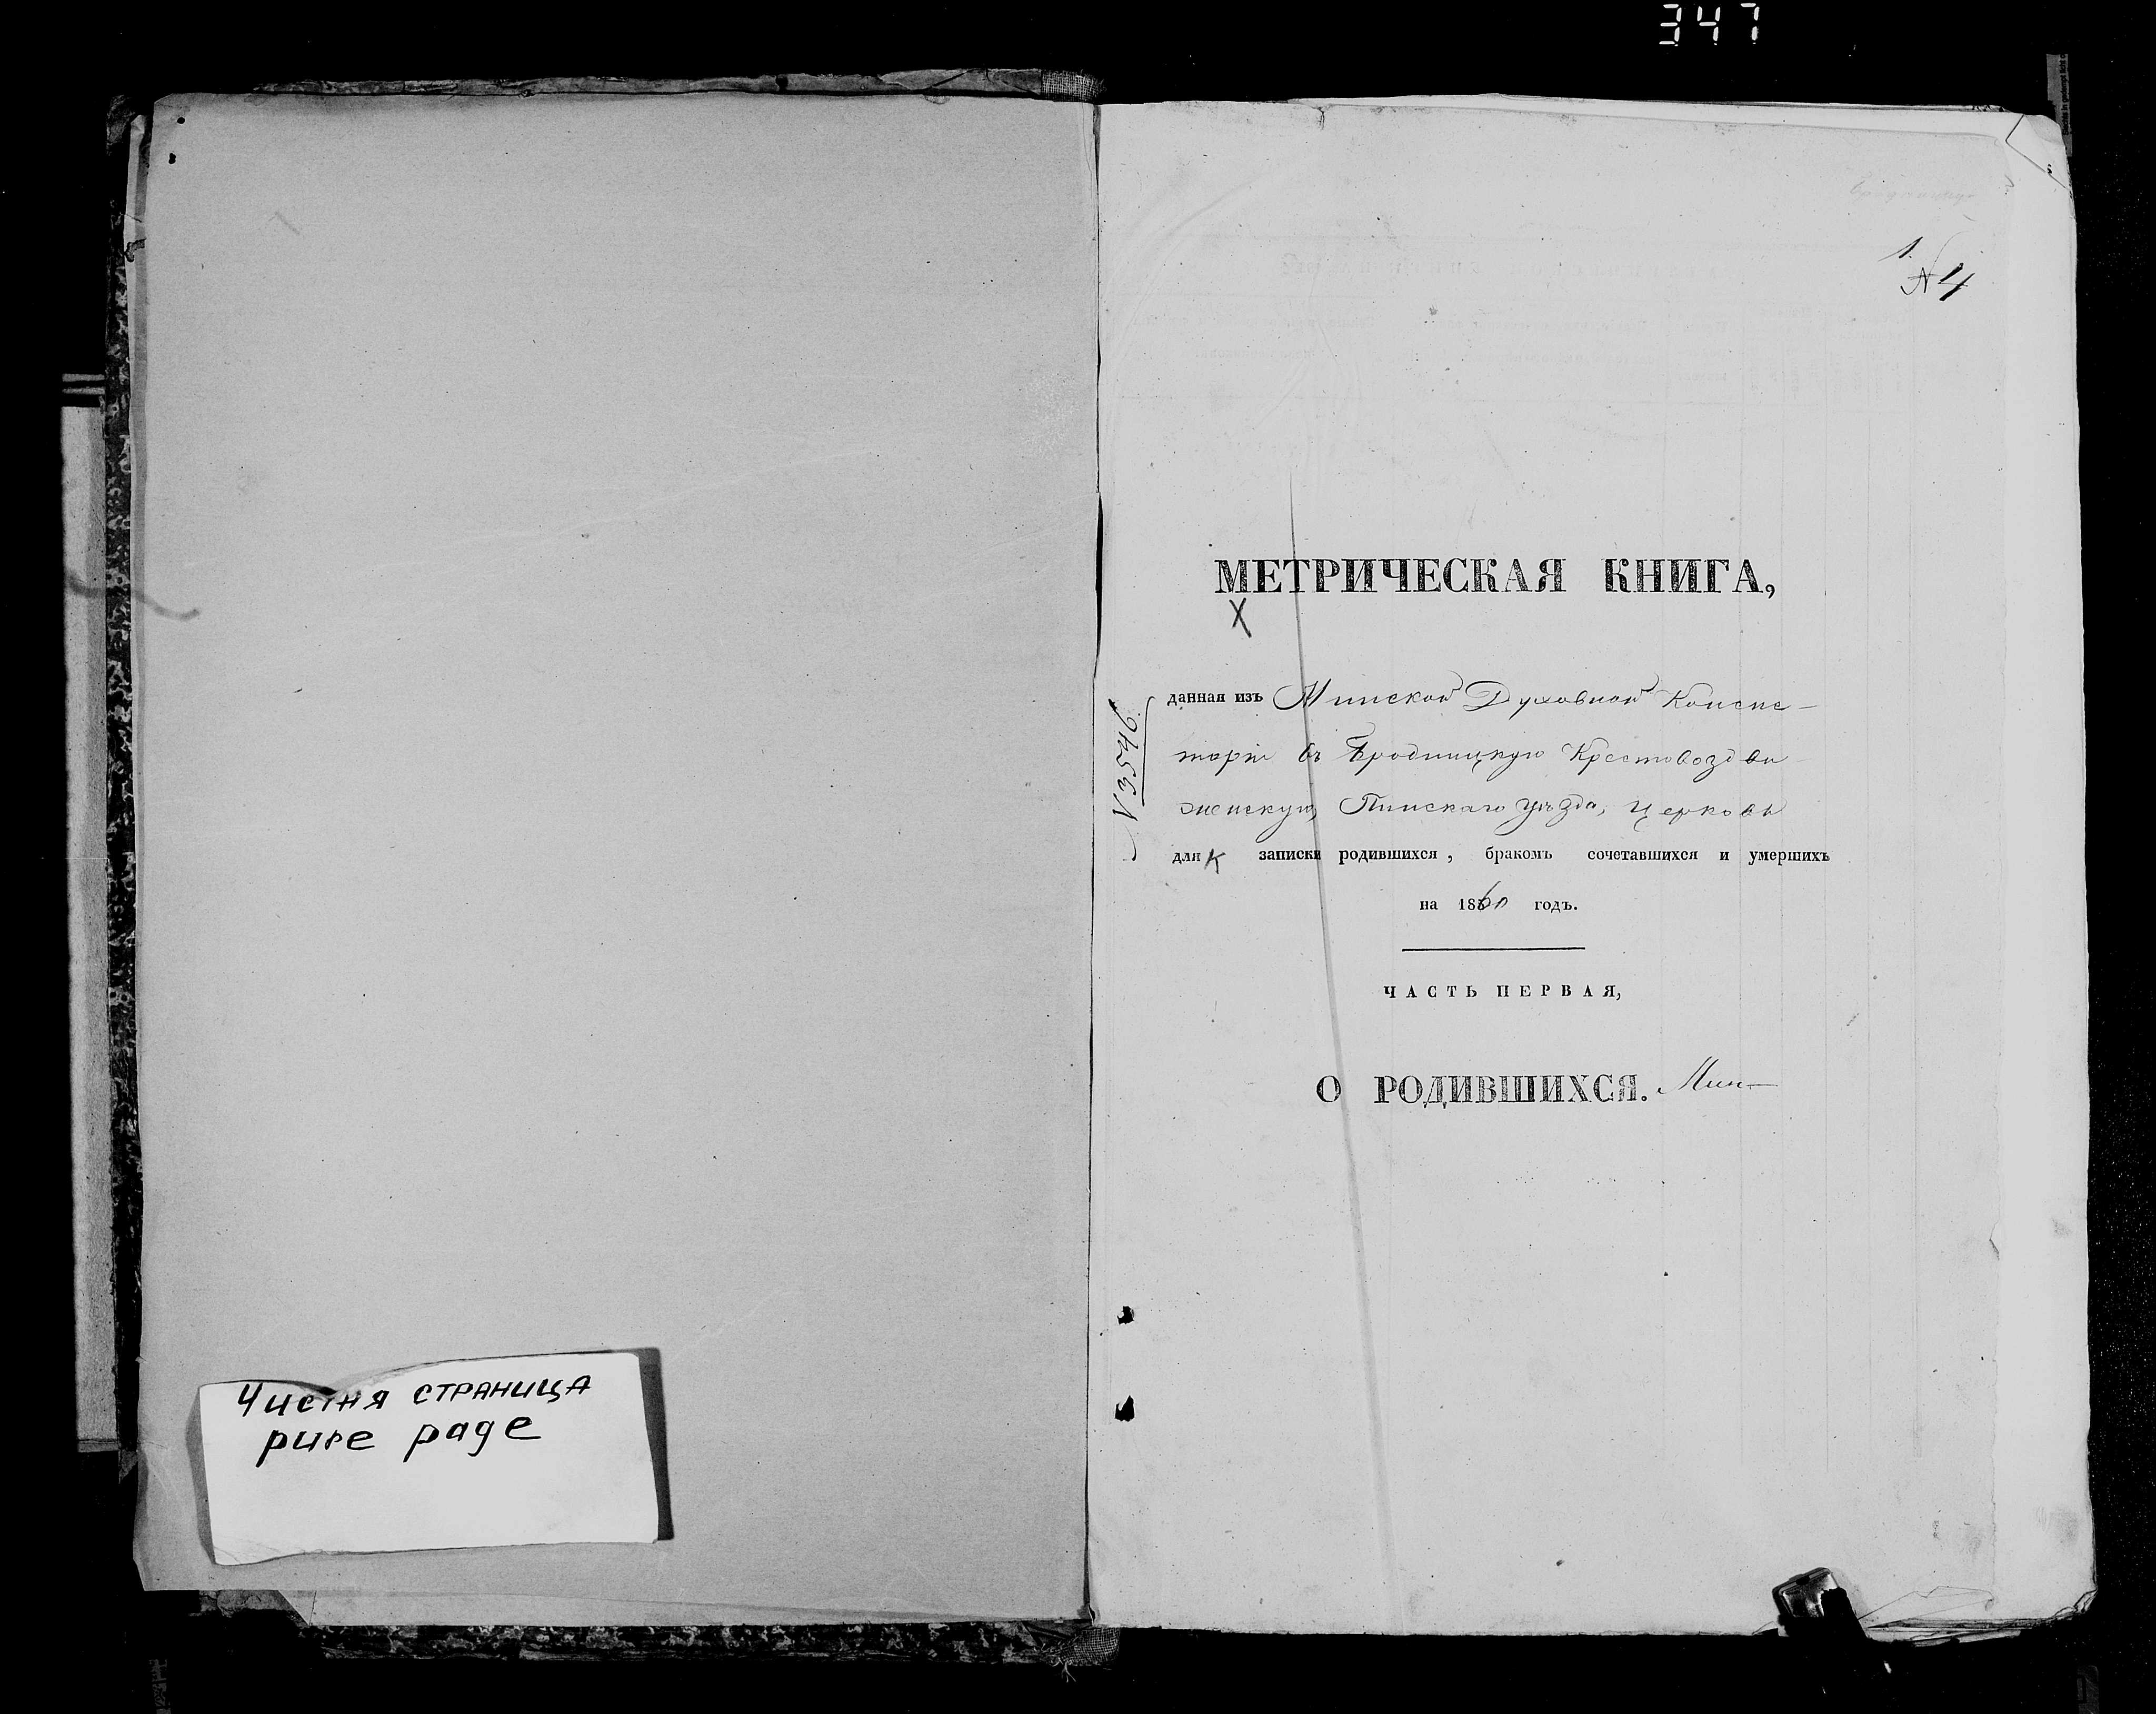 347
1.
№ 4
МЕТРИЧЕСКАЯ КНИГА,
N 3546.
данная изъ Минской Духовной Консис-
торіи въ Бродницкую Крестовоздви-
женскую, Пинскаго уѣзда, Церковь
для записки родившихся, бракомъ сочетавшихся и умершихъ
на 1860 годъ.
ЧАСТЬ ПЕРВАЯ,
О РОДИВШИХСЯ. Мин-
Чистая страница
pure page